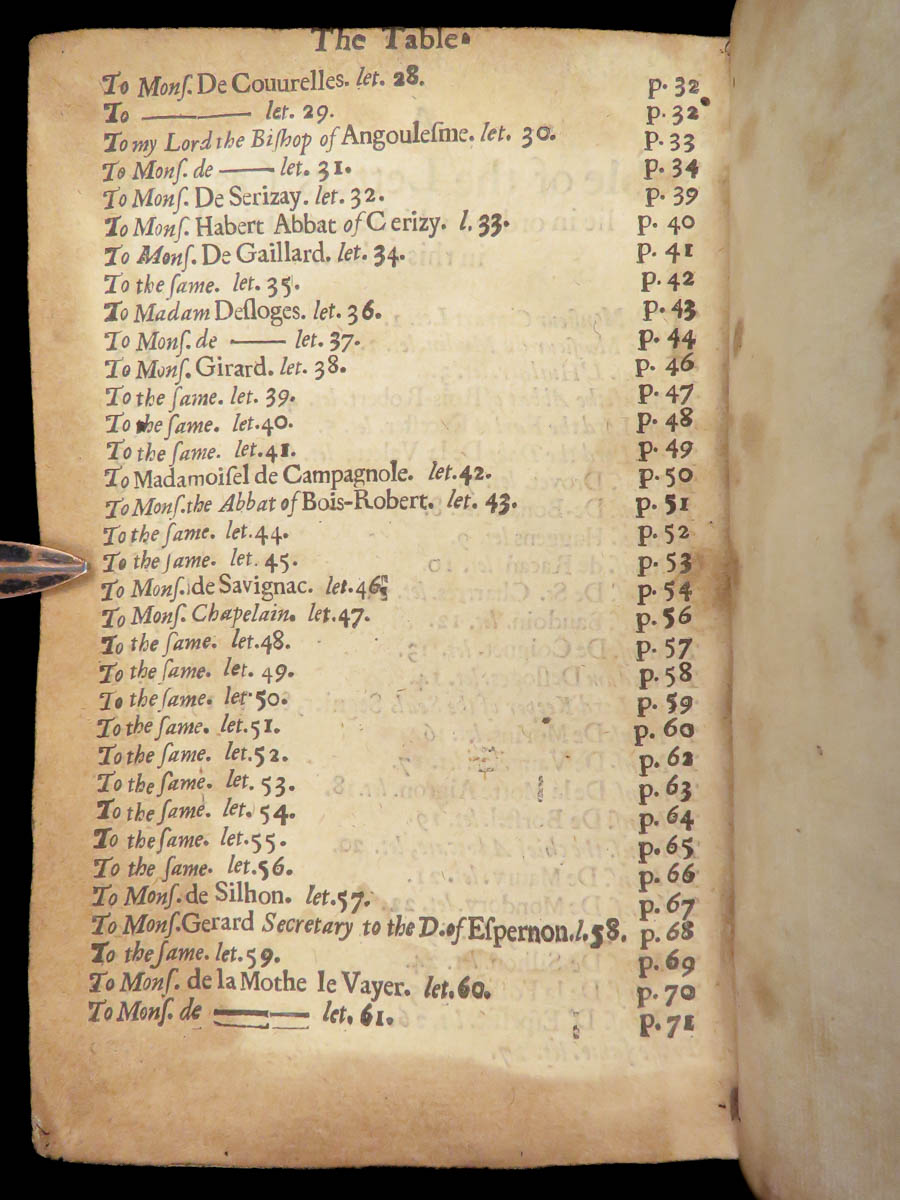 The Table.
To Monſ. De Couurelles. let. 28. p. 32
To ——— let. 29. p. 32
To my Lord the Biſhop of Angouleſme. let. 30. p. 33
To Monſ. de —— let. 31. p. 34
To Monſ. De Serizay. let. 32. p. 39
To Monſ. Habert Abbat of Cerizy. l. 33. p. 40
To Monſ. De Gaillard. let. 34. p. 41
To the ſame. let. 35. p. 42
To Madam Deſloges. let. 36. p. 43
To Monſ. de —— let. 37. p. 44
To Monſ. Girard. let. 38. p. 46
To the ſame. let. 39. p. 47
To the ſame. let. 40. p. 48
To the ſame. let. 41. p. 49
To Madamoiſel de Campagnole. let. 42. p. 50
To Monſ. the Abbat of Bois-Robert. let. 43. p. 51
To the ſame. let. 44. p. 52
To the ſame. let. 45. p. 53
To Monſ. de Savignac. let. 46. p. 54
To Monſ. Chapelain. let. 47. p. 56
To the ſame. let. 48. p. 57
To the ſame. let. 49. p. 58
To the ſame. let. 50. p. 59
To the ſame. let. 51. p. 60
To the ſame. let. 52. p. 62
To the ſame. let. 53. p. 63
To the ſame. let. 54. p. 64
To the ſame. let. 55. p. 65
To the ſame. let. 56. p. 66
To Monſ. de Silhon. let. 57. p. 67
To Monſ. Gerard Secretary to the D. of Eſpernon. l. 58. p. 68
To the ſame. let. 59. p. 69
To Monſ. de la Mothe le Vayer. let. 60. p. 70
To Monſ. de ——— let. 61. p. 71